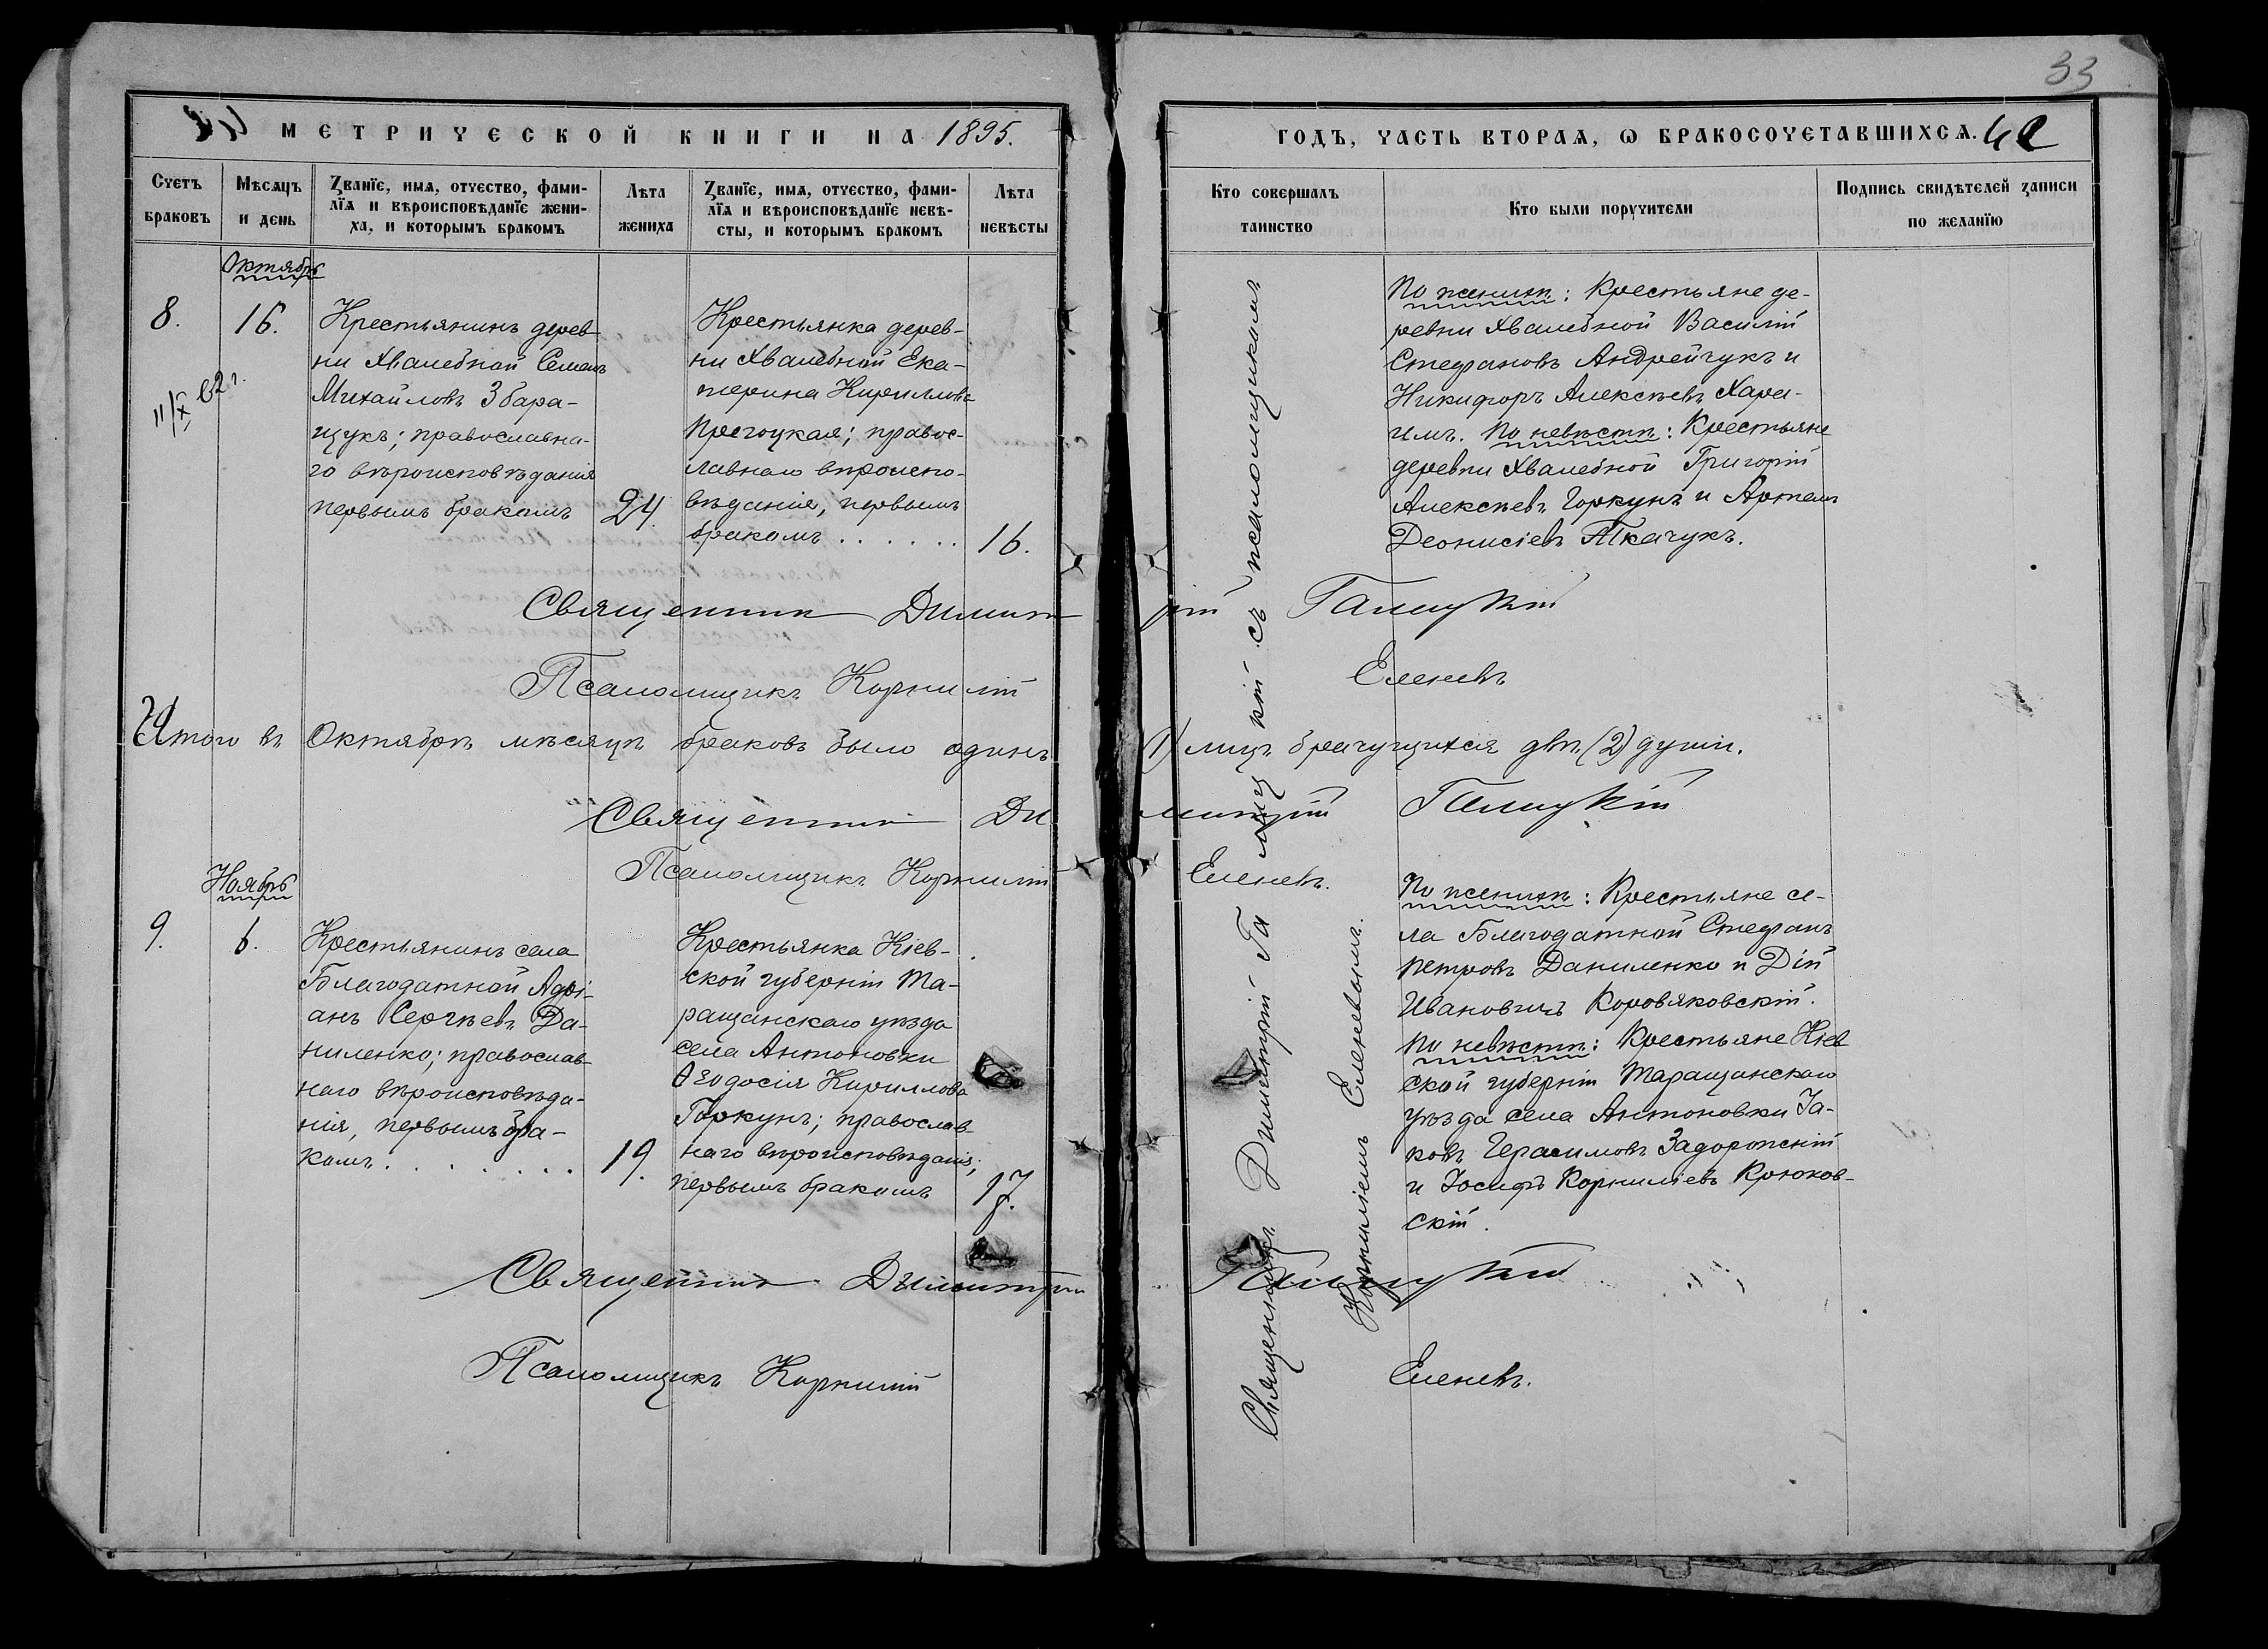 33
МЕТРИЧЕСКОЙ КНИГИ НА 1895.
ГОДЪ, ЧАСТЬ ВТОРАѦ, Ѡ БРАКОСОЧЕТАВШИХСѦ.
Счетъ браковъ
Мѣсѧцъ и день
Званїе, имѧ, отчество, фами-
лїѧ и вѣроисповѣданїе жени-
ха, и которымъ бракомъ
Лѣта жениха
Званїе, имѧ, отчество, фами-
лїѧ и вѣроисповѣданїе невѣ-
сты, и которымъ бракомъ
Лѣта невѣсты
Кто совершалъ таинство
Кто были поручители
Подпись свидѣтелей записи
по желанїю
Октябрь
8.
16.
Крестьянинъ дерев-
ни Хвалебной Семенъ
Михайловъ Збара-
щукъ; православна-
го вѣроисповѣданія
первымъ бракомъ
24.
Крестьянка дерев-
ни Хвалебной Ека-
терина Кириллова
правос-
лавнаго вѣроиспо-
вѣданія, первымъ
бракомъ . . . . . .
16.
По женихѣ: Крестьяне де-
ревни Хвалебной Василій
Стефановъ Андрейчукъ и
Никифоръ Алексѣевъ
По невѣстѣ: Крестьяне
деревни Хвалебной Григорій
Алексѣевъ Горкунъ и Артемъ
Деонисіевъ Ткачукъ.
Священникъ Димитрій Галицкій
Псаломщикъ Корнилій Еленевъ
Итого въ Октябрѣ мѣсяцѣ браковъ было одинъ (1) лицъ брачущихся двѣ (2) души.
Священникъ Димитрій Галицкій
Псаломщикъ Корнилій Еленевъ.
Ноябрь
9.
6.
Крестьянинъ села
Благодатной Адрі-
анъ Сергѣевъ Да-
ниленко; православ-
наго вѣроисповѣда-
нія, первымъ бра-
комъ. . . . . . . .
19.
Крестьянка Кіев-
ской губерніи Та-
ращанскаго уѣзда
села Антоновки
Ѳеодосія Кириллова
Горкунъ; православ-
наго вѣроисповѣданія;
первымъ бракомъ
17.
По женихѣ: Крестьяне се-
ла Благодатной Стефанъ
Петровъ Даниленко и Дій
Ивановичъ Коровяковскій.
По невѣстѣ: Крестьяне Кіев
ской губерніи Таращанскаго
уѣзда села Антоновки Іа-
ковъ Герасимовъ Задорожній
и Іосифъ Корниліевъ Крюков-
скій.
Священникъ Димитрій Галицкій съ псаломщикомъ
Корниліемъ Еленевымъ.
Священникъ Димитрій Галицкій
Псаломщикъ Корнилій Еленевъ.